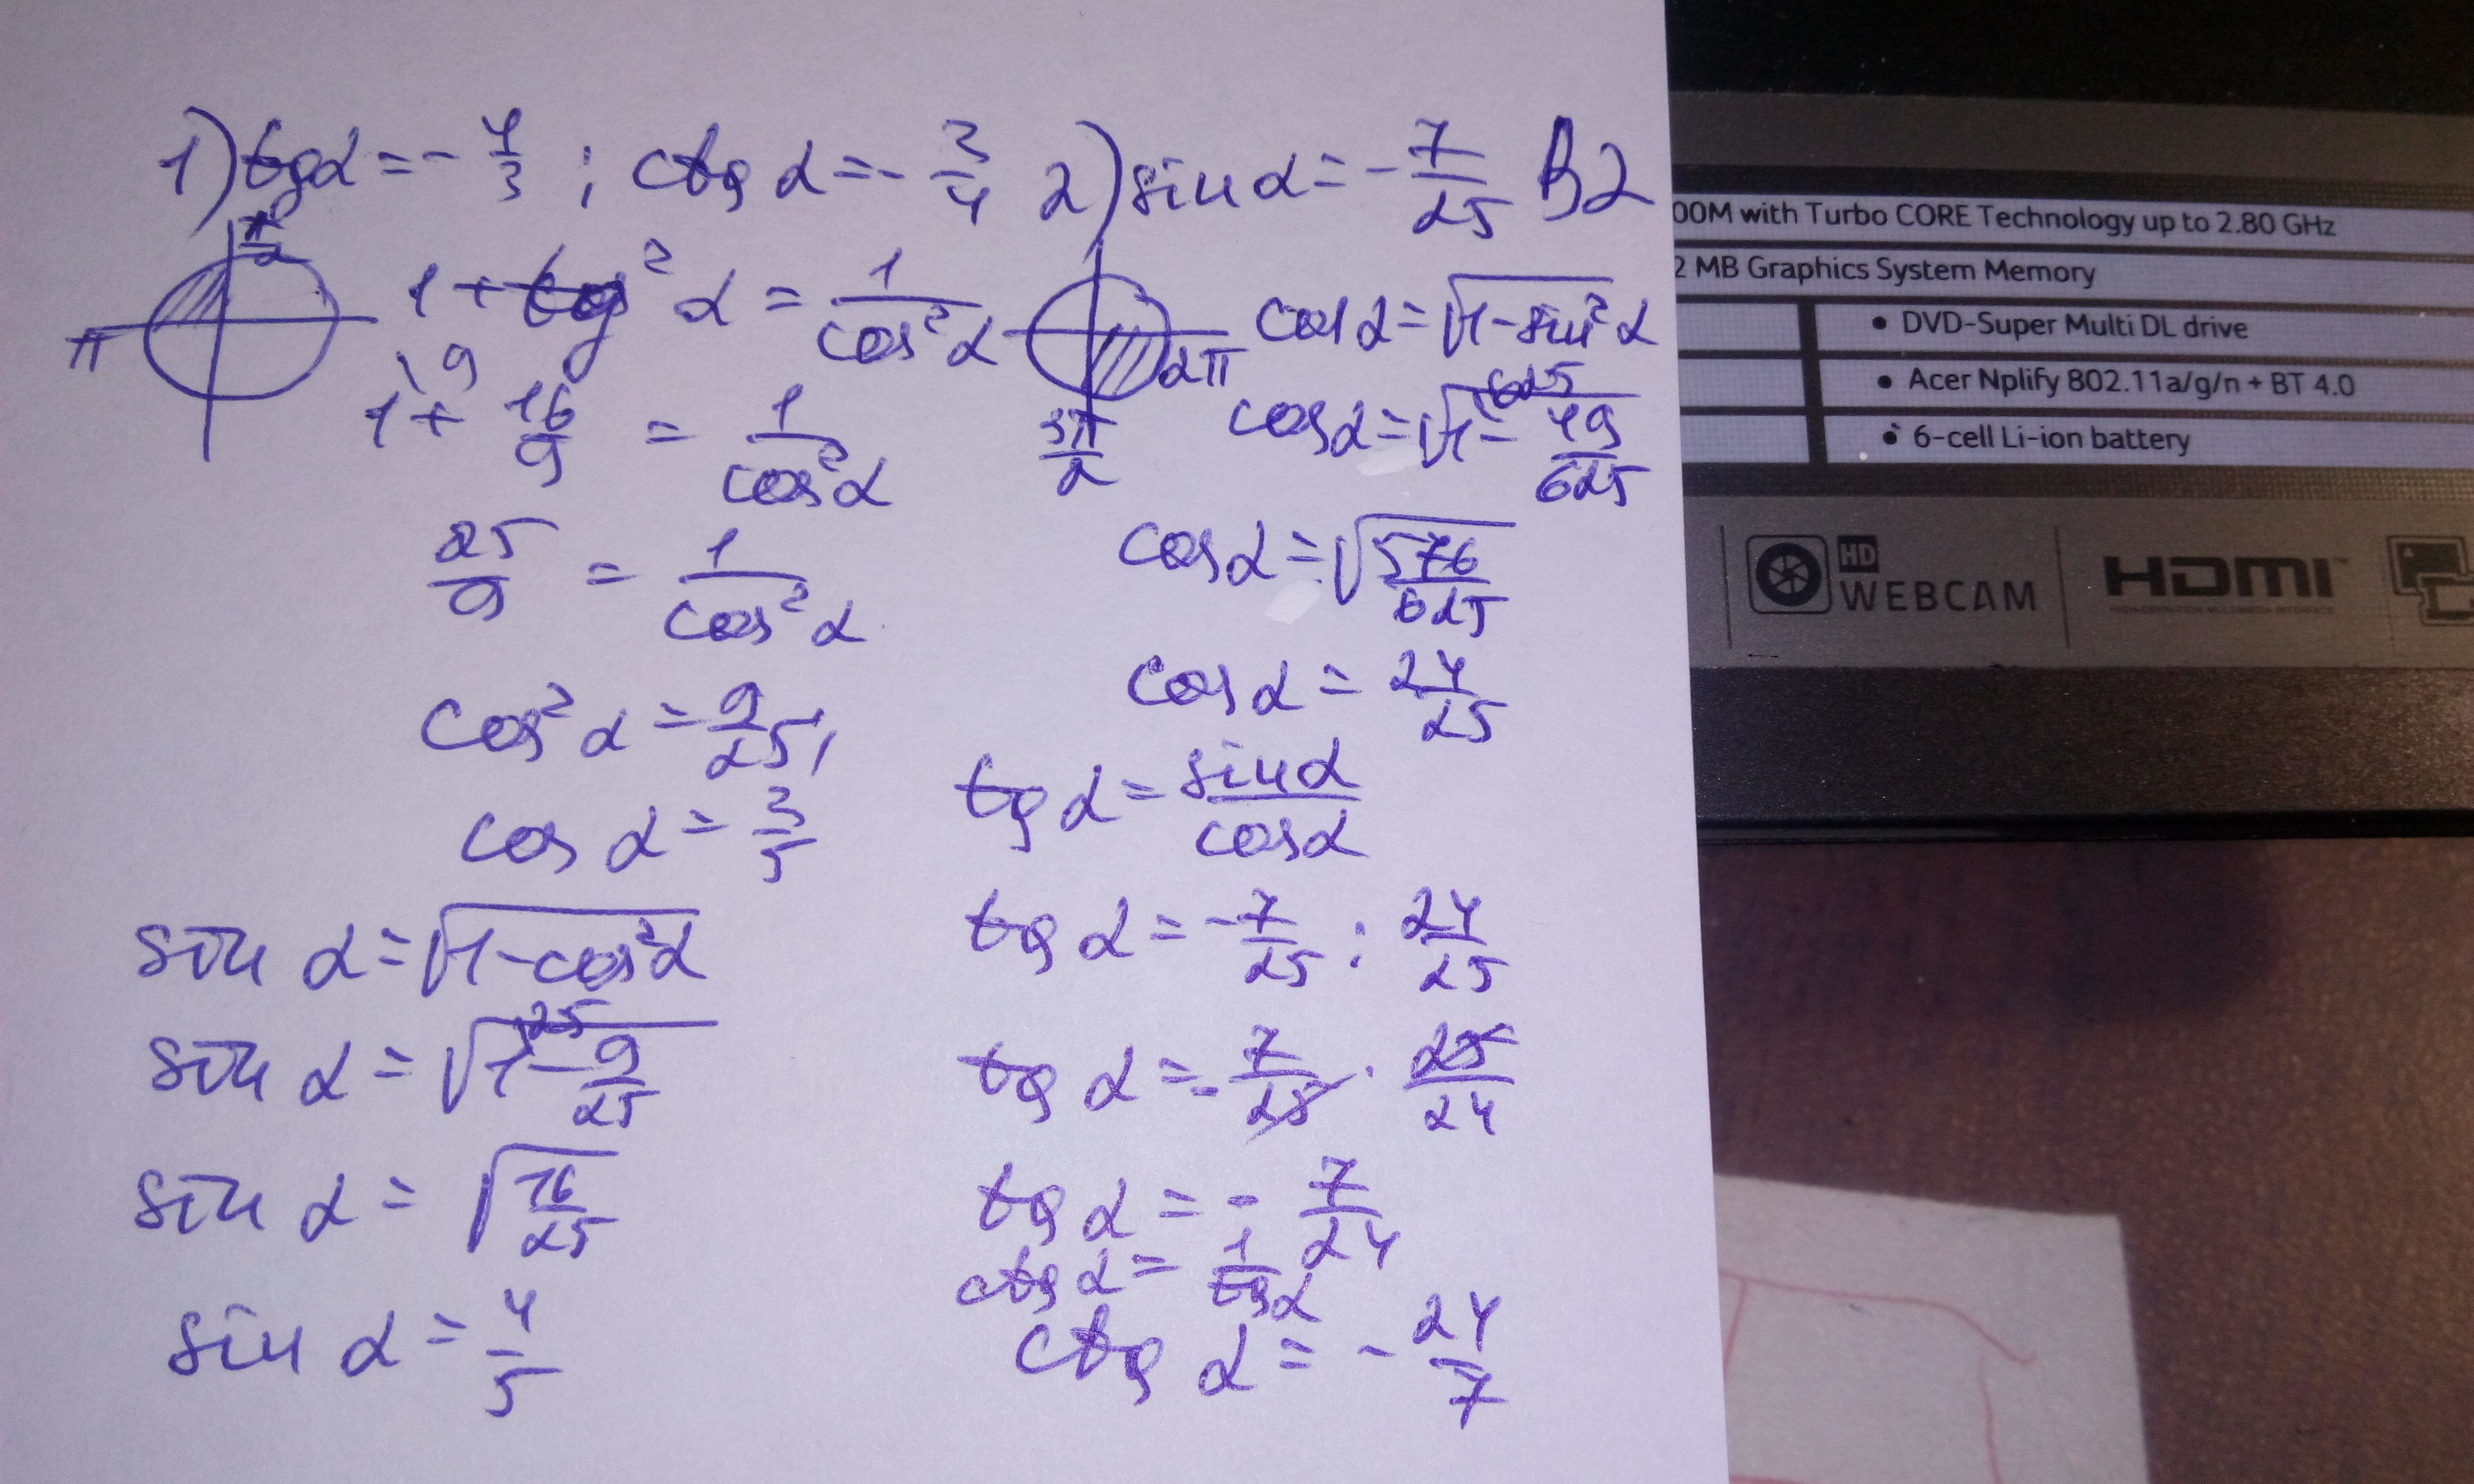 1) tgα = - 4/3 ; ctg α = - 3/4
π/2
π
1 + tg² α = 1/cos² α
\9
1 + 16/9 = 1/cos² α
25/9 = 1/cos² α
cos² α = 9/25,
cos α = 3/5
sin α = √1 - cos² α
sin α = √1\25 - 9/25
sin α = √16/25
sin α = 4/5
2) sin α = - 7/25 B2
2π
3π/2
cos α = √1 - sin² α
cos α = √1\625 - 49/625
cos α = √576/625
cos α = 24/25
tg α = sin α/cos α
tg α = - 7/25 : 24/25
tg α = - 7/25 · 25/24
tg α = - 7/24
ctg α = 1/tg α
ctg α = - 24/7
00M with Turbo CORE Technology up to 2.80 GHz
2 MB Graphics System Memory
• DVD-Super Multi DL drive
• Acer Nplify 802.11a/g/n + BT 4.0
• 6-cell Li-ion battery
HD
WEBCAM
HDMI™